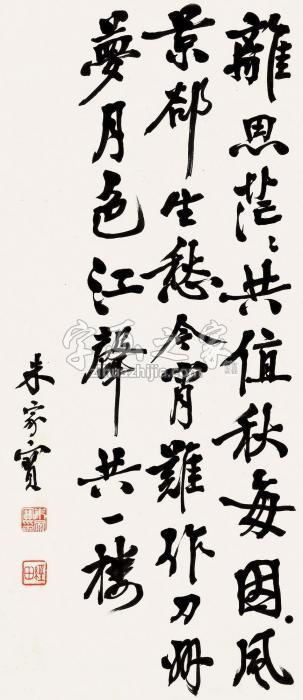 離思茫〻共值秋每因風
景卻生愁今宵難作刀州
夢月色江聲共一樓
朱家寶
經田
zihuazhijia.com